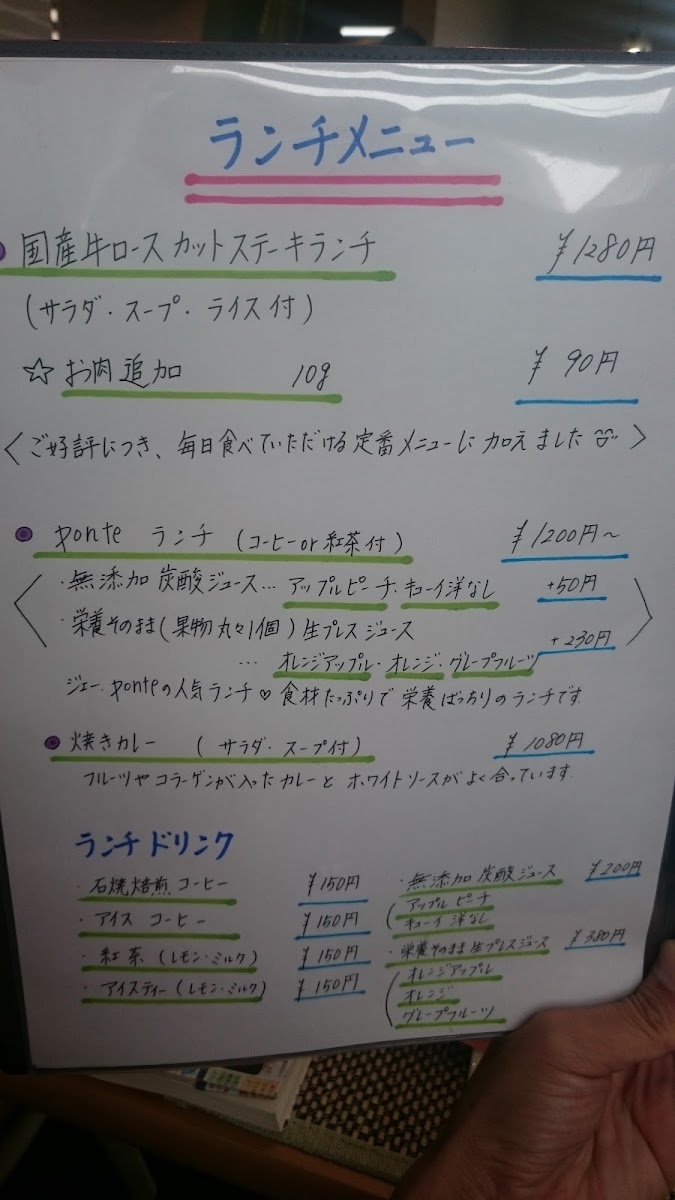 ランチメニュー
国産牛ロースカットステーキランチ ¥1280円
(サラダ・スープ・ライス付)
☆お肉追加 10g ¥90円
〈ご好評につき、毎日食べていただける定番メニューに加えました〉
ponte ランチ (コーヒーor紅茶付) ¥1200円~
・無添加 炭酸ジュース… アップルピーチ・キューイ洋なし +50円
・栄養そのまま(果物丸々1個)生プレスジュース +230円
… オレンジアップル・オレンジ・グレープフルーツ
ジェー.ponteの人気ランチ♡食材たっぷりで栄養ばっちりのランチです.
焼きカレー (サラダ・スープ付) ¥1080円
フルーツやコラーゲンが入ったカレーと ホワイトソースがよく合っています.
ランチドリンク
・石焼焙煎コーヒー ¥150円
・アイスコーヒー ¥150円
・紅茶(レモン・ミルク) ¥150円
・アイスティー(レモン・ミルク) ¥150円
・無添加炭酸ジュース ¥200円
(アップルピーチ
キューイ洋なし
・栄養そのまま生プレスジュース ¥380円
(オレンジアップル
オレンジ
グレープフルーツ